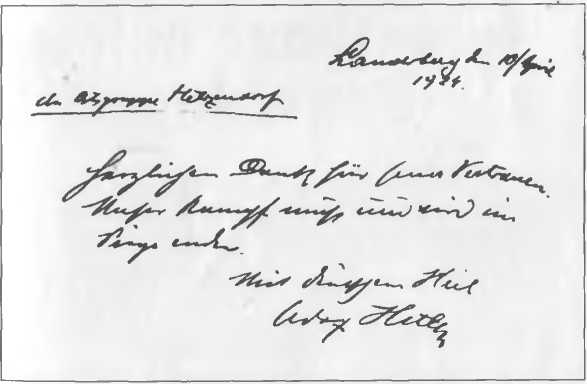 Landsberg den 10/April
1924.
An Ortsgruppe Hetzendorf
Herzlichen Dank für Euer Vertrauen.
Unser Kampf muß und wird im
Siege enden.
Mit deutschem Heil
Adolf Hitler